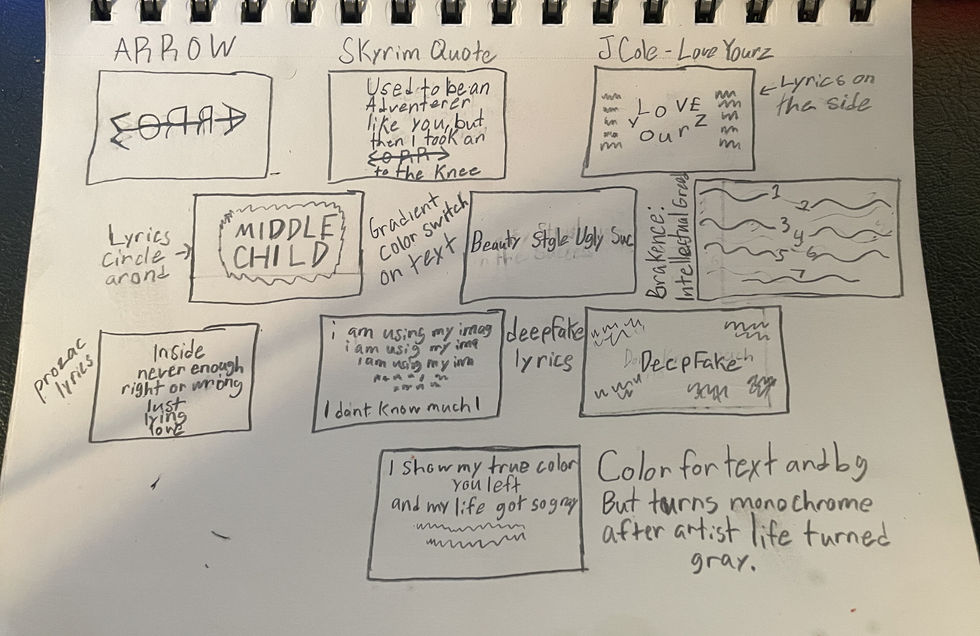 ARROW
SKyrim Quote
J Cole - Love Yourz
Used to be an
Adventerer
like you, but
then I took an
to the Knee
LOVE
YourZ
← Lyrics on
the side
Lyrics
Circle →
arond
MIDDLE
CHILD
Gradient
color switch
on text
Beauty Style Ugly Suc
Brakence:
Intellectual Greed
1
2
3
4
5
6
7
prozac
lyrics
Inside
never enough
right or wrong
lust
lying
love
i am using my imag
i am usig my ima
i am usig my im
I dont know much I
deepfake
lyrics
DeepFake
I show my true color
you left
and my life got so gray
Color for text and bg
But turns monochrome
after artist life turned
gray.